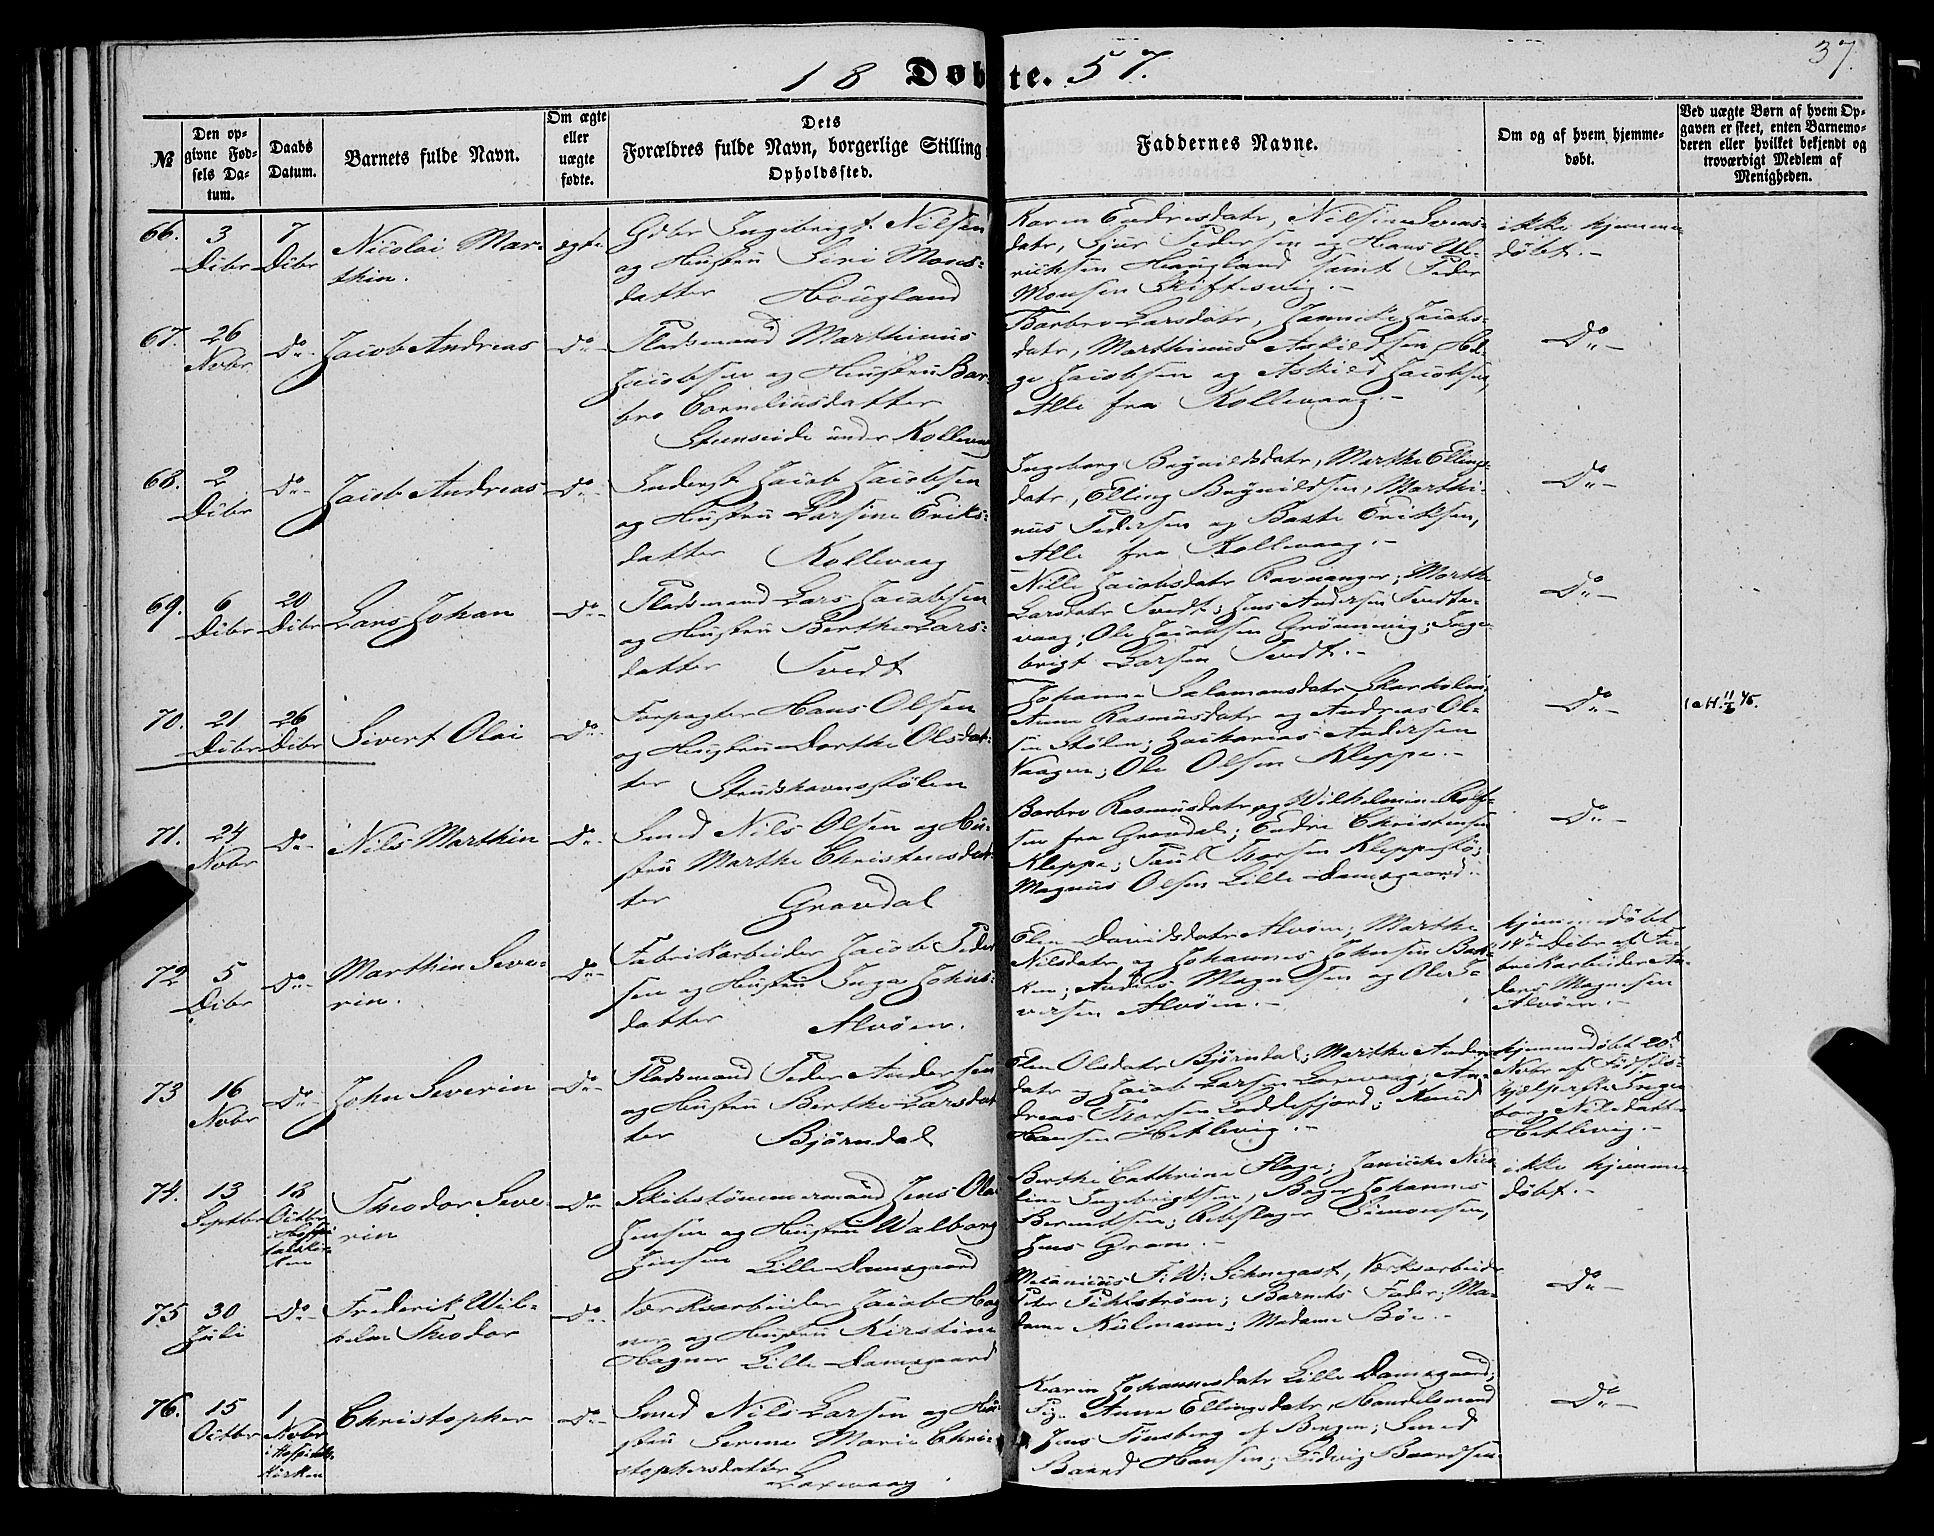 37.
18 Døbte. 57.
№
Den opgivne Fødsels Datum.
Daabs Datum.
Barnets fulde Navn.
Om ægte eller uægte fødte.
Dets Forældres fulde Navn, borgerlige Stilling
Opholdssted.
Faddernes Navne.
Om og af hvem hjemmedøbt.
Ved uægte Børn af hvem Opgaven er skeet, enten Barnemoderen eller hvilket bekjendt og troværdigt Medlem af Menigheden.
66.
3 Dcbr
7 Dcbr
Nicolai Marthin.
ægte
Gdbr Ingebrigt Nilsen
og Hustru Siri Monsdatter
Hougland
Karen Endresdatr, Nilsine Larsdatr,
Sjur Pedersen og Hans Ulriksen
Haugland samt Peder
Monsen Skiftesvig.-
ikke hjemmedøbt.-
67.
26 Novbr
Do-
Jacob Andreas
Do-
Pladsmand Marthinus
Jacobsen og Hustru Barbro
Corneliusdatter
Steenseide under Kollevaag
Barbro Larsdatr, Jannike Jacobsdatr,
Marthinus Askildsen, Helge
Jacobsen og Askild Jacobsen,
Alle fra Kollevaag.-
Do-
68.
2 Dcbr
Do-
Jacob Andreas
Do-
Inderst Jacob Jacobsen
og Hustru Larsine Eriksdatter
Kollevaag
Ingeborg Brynildsdatr, Marthe Ellingsdatr,
Elling Brynildsen, Marthinus
Pedersen og Baste Eriksen,
Alle fra Kollevaag.-
Do-
69.
6 Dcbr
20 Dcbr
Lars Johan
Do-
Pladsmand Lars Jacobsen
og Hustru Berthe Larsdatter
Tvedt
Nille Jacobsdatr Ravnanger; Marthe
Larsdatr Tvedt; Jens Andersen Tvedtevaag;
Ole Jacobsen Grønnevig; Ingebrigt
Larsen Tvedt.-
Do-
70.
21 Dcbr
26 Dcbr
Sivert Olai
Do-
Forpagter Hans Olsen
og Hustru Dorthe Olsdatter
Strudshavnsstølen
Johanne Salamonsdatr Skarholm;
Anne Rasmusdatr og Andreas Olsen
Stølen; Zacharias Andersen
Vaagen; Ole Olsen Kleppe.-
Do-
71.
24 Novbr
Do-
Nils Marthin
Do-
Smed Nils Olsen og Hustru
Marthe Christensdatter
Gravdal
Barbro Rasmusdatr og Wilhelmine Rolfsen
fra Gravdal; Endre Christensen
Kleppe; Poul Thorsen Kleppestø;
Magnus Olsen Lille-Damsgaard.-
Do-
72
5 Dcbr
Do-
Marthin Severin.
Do-
Fabrikarbeider Jacob Pedersen
og Hustru Inga Johnsdatter
Alvøen.
Elen Davidsdatr Alvøen; Marthe
Nilsdatr og Johannes Johnsen Bakken;
Anders Magnesen og Ole Iversen
Alvøen.-
hjemmedøbt
14de Dcbr af Fabrikarbeider
Anders Magnesen
Alvøen.-
73
16 Novbr
Do-
John Severin
Do-
Pladsmand Peder Andersen
og Hustru Berthe Larsdatter
Bjørndal
Elen Olsdatr Bjørndal; Marthe Andersdatr
og Jacob Larsen Laxevaag; Andreas
Thorsen Loddefjord; Knud
Hansen Hetlevig.-
hjemmedøbt 20d
Novbr af Fødselshjelperske
Ingeborg
Nilsdatter
Hetlevig.-
74.
13 Septbr
18 Octbr
i Hospitalskirken
Theodor Severin
Do-
Skibstømmermand Jens Olai
Jensen og Hustru Walborg
Jensen Lille-Damsgaard
Berthe Cathrine Flage; Janicke Nicoline
Ingebrigtsen, Bager Johannes
Berentsen; Rebslager Simonsen,
Jens Gran.-
ikke hjemmedøbt.-
75
30 Juli
Do-
Frederik Wilhelm Theodor
Do-
Værksarbeider Jacob Hagner
og Hustru Kirstine
Hagner Lille-Damsgaard
Mecanicus F: W: Schnegast, Værksarbeider
Peter Pihlstrøm; Barnets Fader; Madame
Kulmann; Madame Bøe.-
Do-
76.
15 Octbr
1 Novbr
i Hospitalskirken
Christopher
Do-
Smed Nils Larsen og Hustru
Serene Marie Christophersdatter
Laxevaag
Karen Johannesdatr Lille Damsgaard;
Pige Anne Ellingsdatr, Handelsmand
Jens Tønsberg af Bergen; Smed
Baard Hansen; Ludvig Baardsen.
Do-